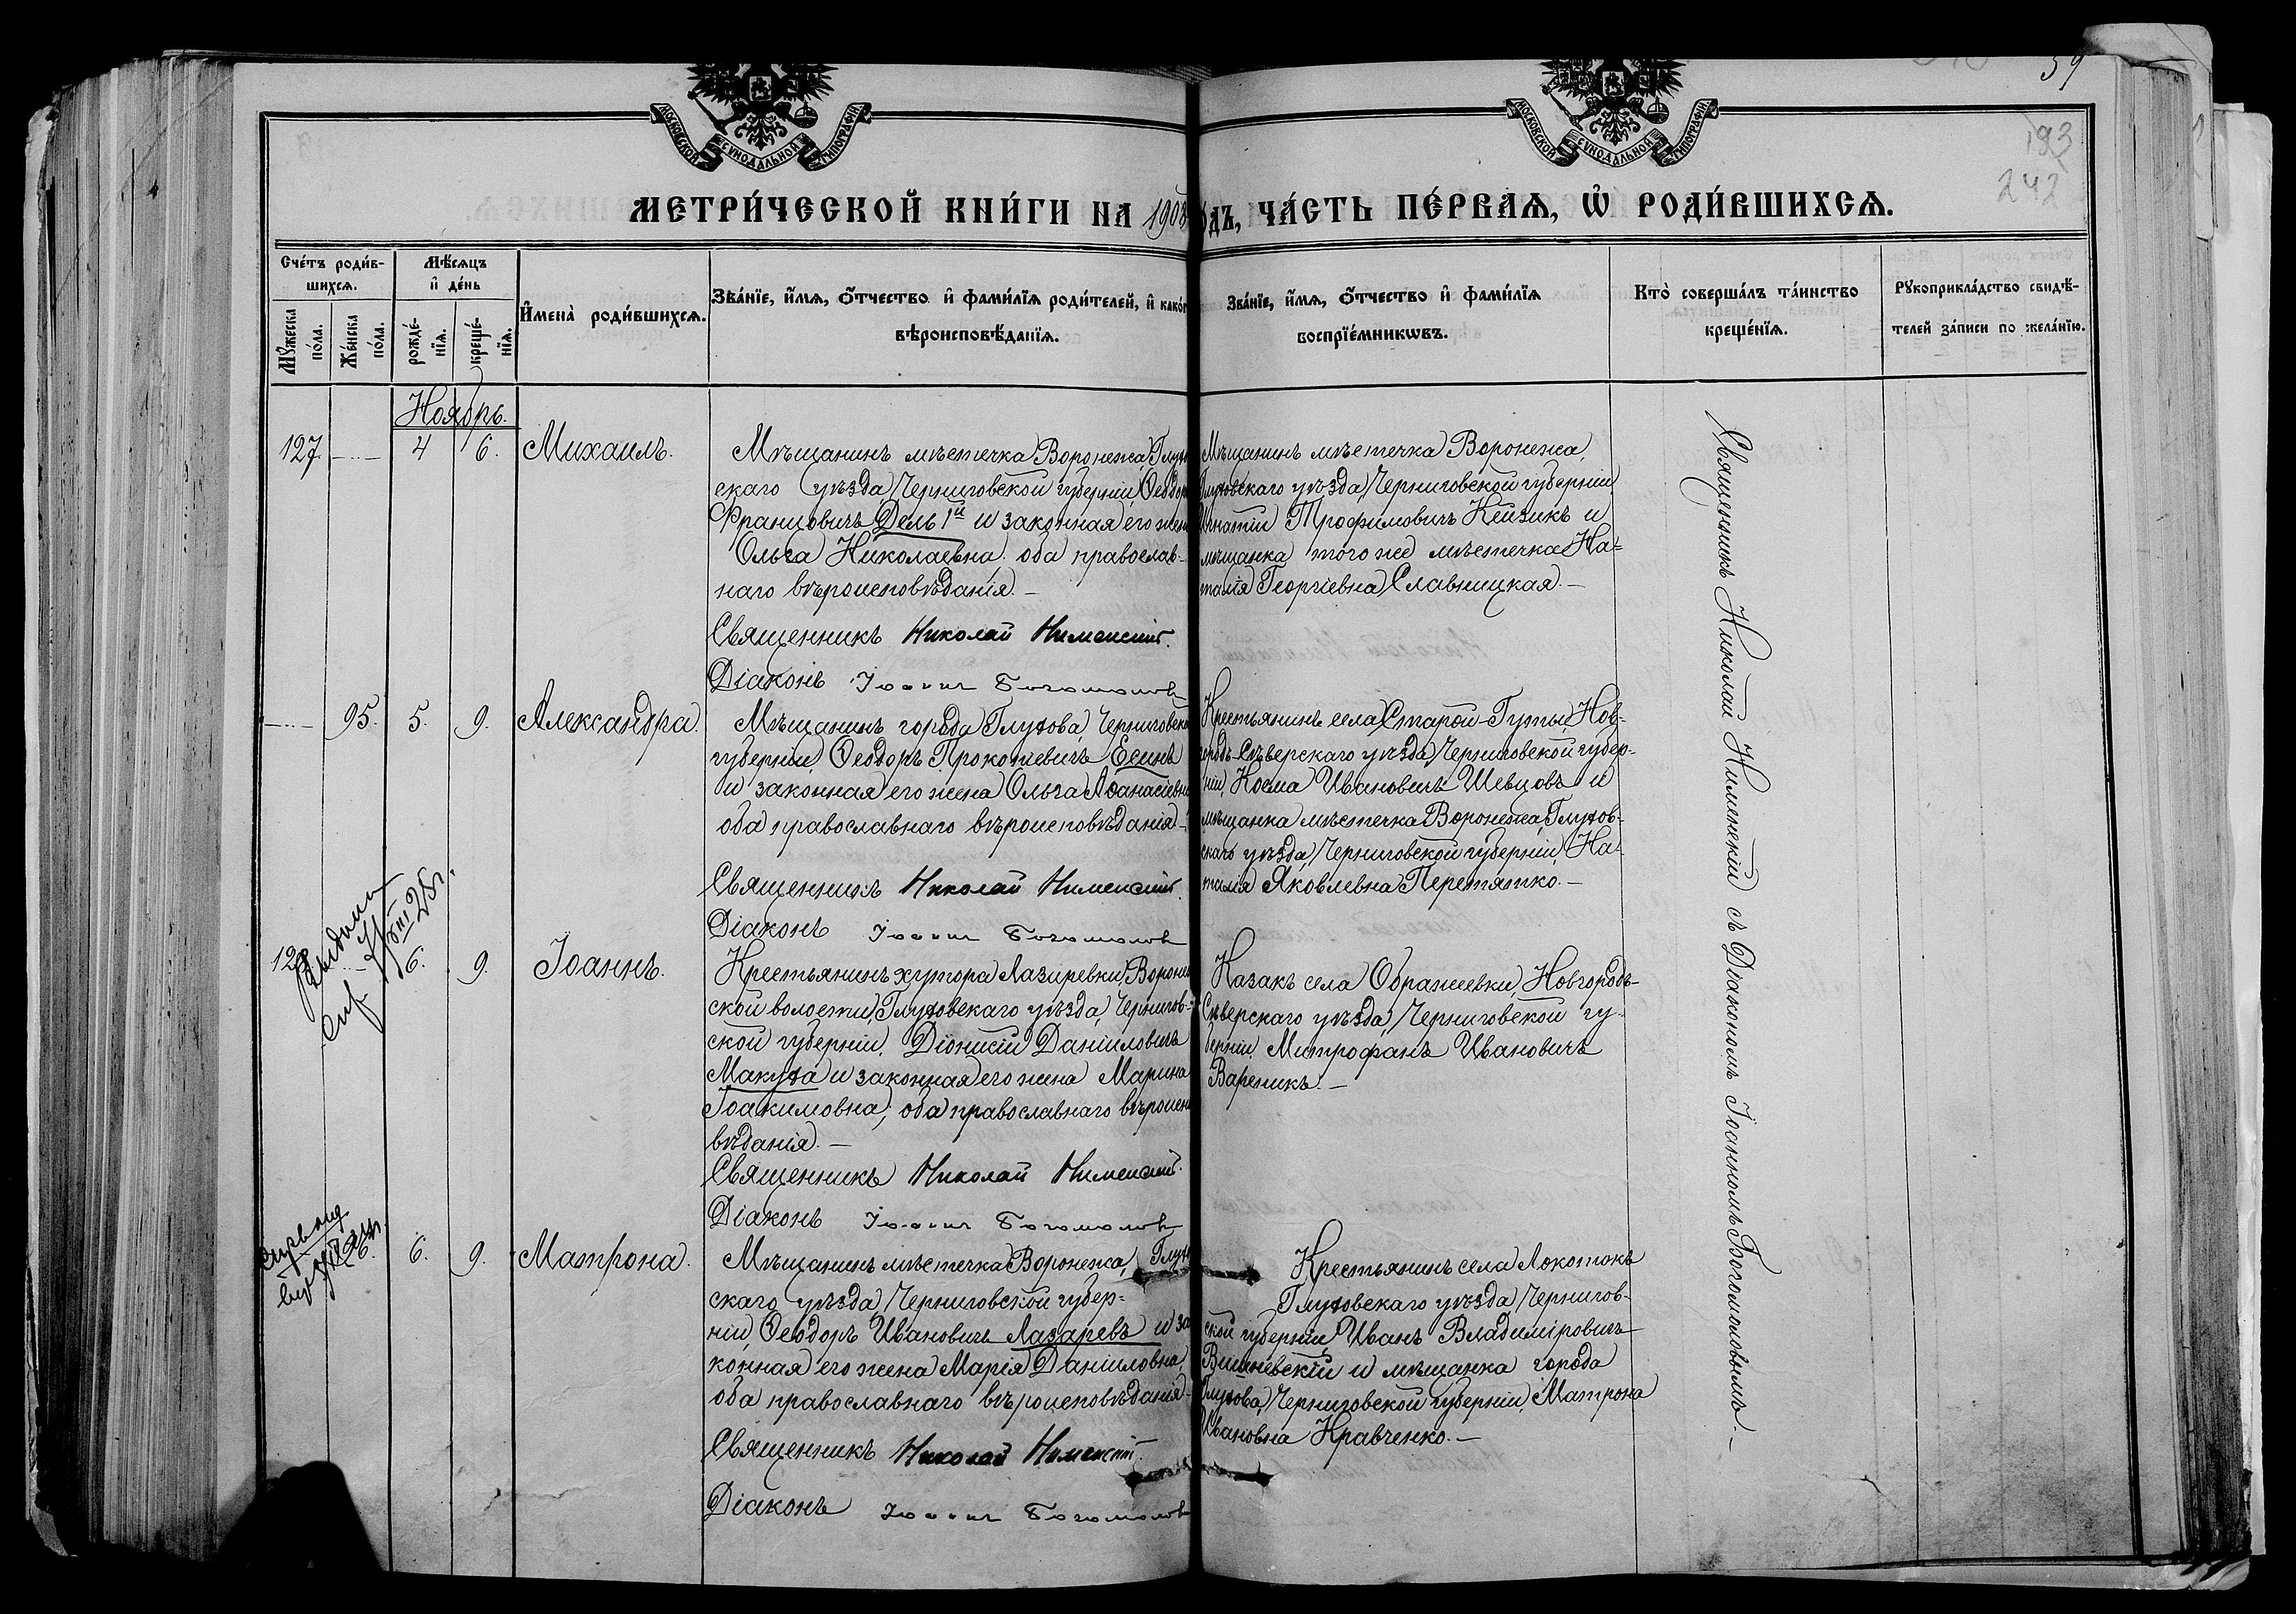 59
193
242
МОСКОВСКОЙ СѴНОДАЛЬНОЙ ТИПОГРАФІИ
МОСКОВСКОЙ СѴНОДАЛЬНОЙ ТИПОГРАФІИ
МЕТРИ́ЧЕСКОЙ КНИ́ГИ НА 1908
ДЪ, ЧА́СТЬ ПЕ́РВАѦ, Ѡ҆ РОДИ́ВШИХСѦ.
Сче́тъ роди́в-
шихсѧ.
Мꙋ́жеска
по́ла.
Же́нска
по́ла.
Мѣ́сѧцъ
и҆ де́нь
рожде́-
нїѧ.
креще́-
нїѧ.
И҆мена̀ роди́вшихсѧ.
Зва́нїе, и҆́мѧ, ѻ҆́тчество и҆ фами́лїѧ роди́телей, и҆ како́г
вѣроисповѣ́данїѧ.
Зва́нїе, и҆́мѧ, ѻ҆́тчество и҆ фами́лїѧ
воспрїе́мникѡвъ.
Кто̀ соверша́лъ та́инство
креще́нїѧ.
Рꙋкоприкла́дство свидѣ́-
телей за́писи по жела́нїю.
Ноябрь.
127. 4 6. Михаилъ.
Мѣщанинъ мѣстечка Воронежа, Глухо
скаго уѣзда, Черниговской губерніи, Ѳеодоръ
Францовичъ Дель 1й и законная его жена
Ольга Николаевна; оба православ-
наго вѣроисповѣданія. —
Священникъ Николай Нименскій.
Діаконъ Іоаннъ Богомоловъ
Мѣщанинъ мѣстечка Воронежа,
Глуховскаго уѣзда, Черниговской губерніи,
Игнатій Трофимовичъ Кейзикъ и
мѣщанка того же мѣстечка На-
талія Георгіевна Славницкая. —
95. 5. 9. Александра.
Мѣщанинъ города Глухова, Черниговской
губерніи, Ѳеодоръ Прокопіевичъ Есинъ
и законная его жена Ольга Аѳанасіевна
оба православнаго вѣроисповѣданія —
Священникъ Николай Нименскій.
Діаконъ Іоаннъ Богомоловъ
Крестьянинъ села Старой-Гуты, Нов-
городъ-Сѣверскаго уѣзда, Черниговской губер-
ніи, Косма Ивановичъ Шевцовъ и
мѣщанка мѣстечка Воронежа, Глухов-
скаго уѣзда, Черниговской губерніи, На-
талія Яковлевна Перетятко. —
128 6. 9. Іоаннъ.
Крестьянинъ хутора Лазиревки, Воронеж
ской волости, Глуховскаго уѣзда, Чернигов-
ской губерніи, Діонисій Даніиловичъ
Макуха и законная его жена Марина
Іоакимовна; оба православнаго вѣроиспо
вѣданія. —
Священникъ Николай Нименскій.
Діаконъ Іоаннъ Богомоловъ
Казакъ села Ображеевки, Новгородъ-
Сѣверскаго уѣзда, Черниговской гу-
берніи, Митрофанъ Ивановичъ
Вареникъ. —
6. 9. Матрона.
Мѣщанинъ мѣстечка Воронежа, Глухо
скаго уѣзда, Черниговской губер-
ніи, Ѳеодоръ Ивановичъ Лазаревъ и за
конная его жена Марія Даніиловна,
оба православнаго вѣроисповѣданія —
Священникъ Николай Нименскій.
Діаконъ Іоаннъ Богомоловъ
Крестьянинъ села Локотокъ
Глуховскаго уѣзда, Чернигов-
ской губерніи, Иванъ Владиміровичъ
Вишневскій и мѣщанка города
Глухова, Черниговской губерніи, Матрона
Ивановна Кравченко. —
Священникъ Николай Нименскій съ Діакономъ Іоанномъ Богомоловымъ. —